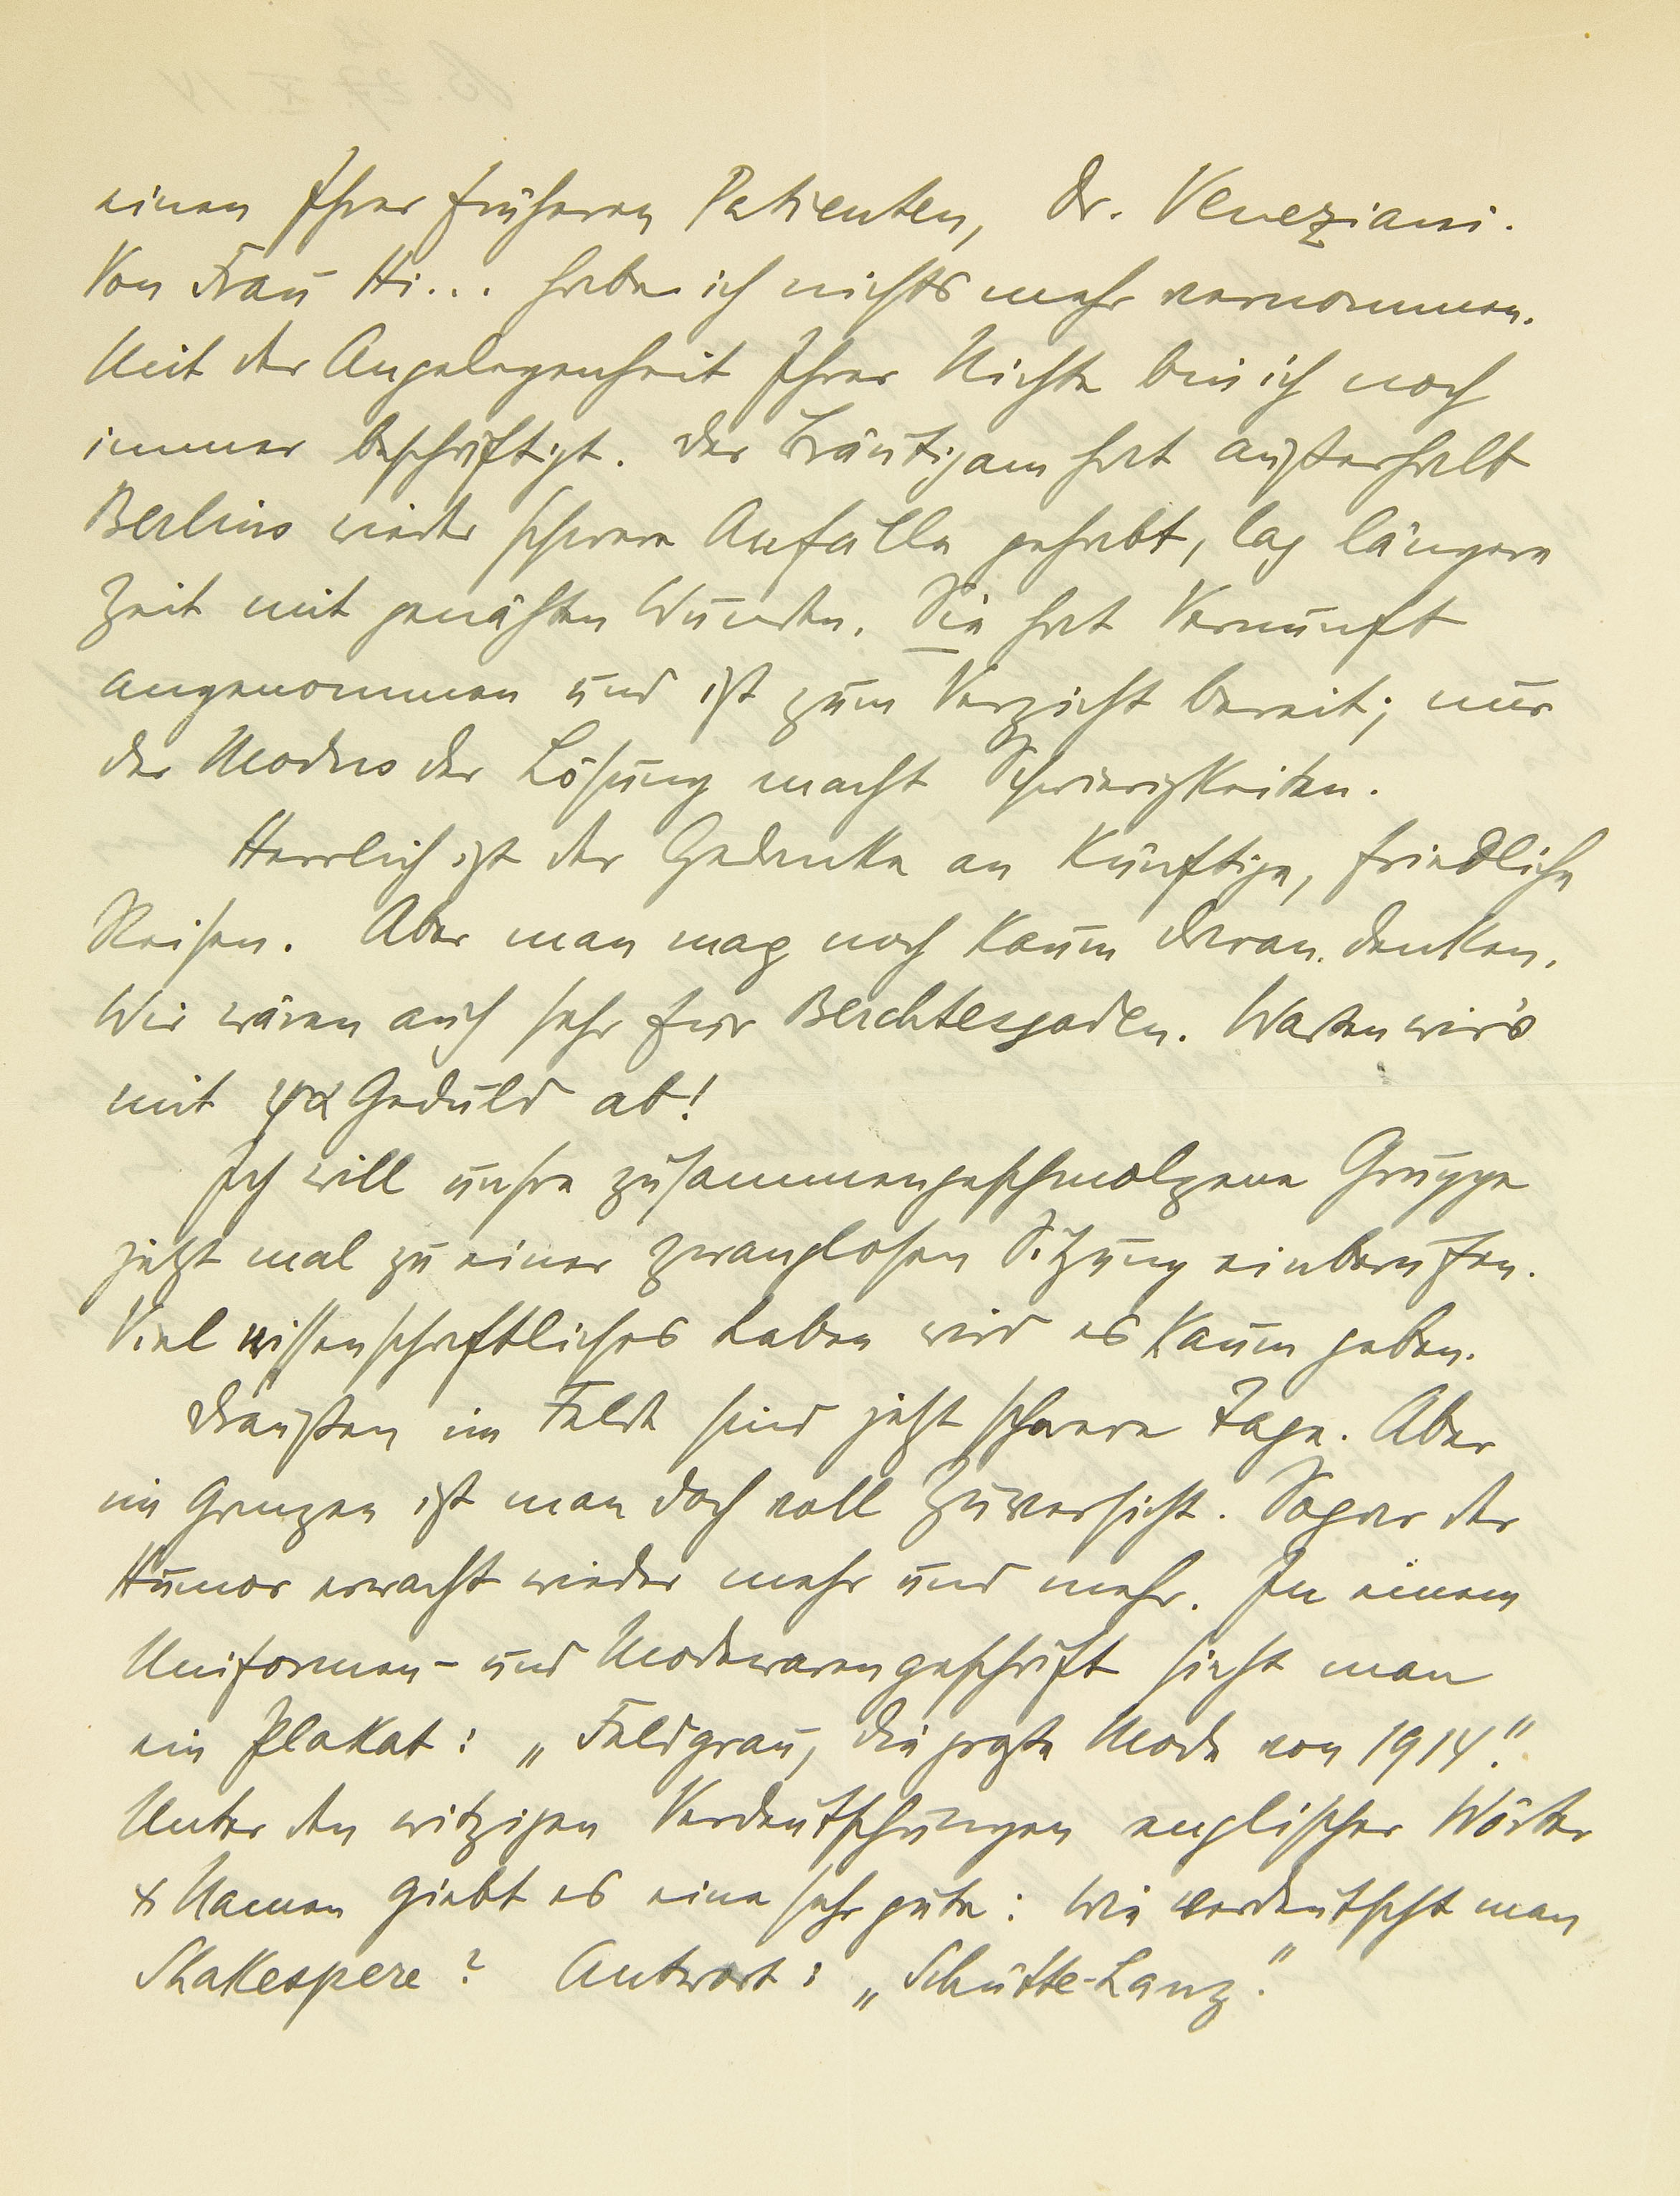 einen Ihrer früheren Patienten, Dr. Veneziani.
Von Frau Hi... habe ich nichts mehr vernommen.
Mit der Angelegenheit Ihrer Nichte bin ich noch
immer beschäftigt. Der Bräutigam hat außerhalb
Berlins wieder schwere Anfälle gehabt, lag längere
Zeit mit genähten Wunden. Sie hat Vernunft
angenommen und ist zum Verzicht bereit; nur
der Modus der Lösung macht Schwierigkeiten.
Herrlich ist der Gedanke an künftige, friedliche
Reisen. Aber man mag noch kaum daran denken.
Wir wären auch sehr für Berchtesgaden. Warten wir's
mit ψα Geduld ab!
Ich will unsre zusammengeschmolzene Gruppe
jetzt mal zu einer zwanglosen Sitzung einberufen.
Viel wissenschaftliches Leben wird es kaum geben.
Draußen im Felde sind jetzt schwere Tage. Aber
im Ganzen ist man doch voll Zuversicht. Sogar der
Humor erwacht wieder mehr und mehr. In einem
Uniformen- und Modewarengeschäft sieht man
ein Plakat: „Feldgrau, die große Mode von 1914."
Unter den witzigen Verdeutschungen englischer Wörter
& Namen giebt es eine sehr gute: Wie verdeutscht man
Shakespere? Antwort: „Schütte-Lanz."